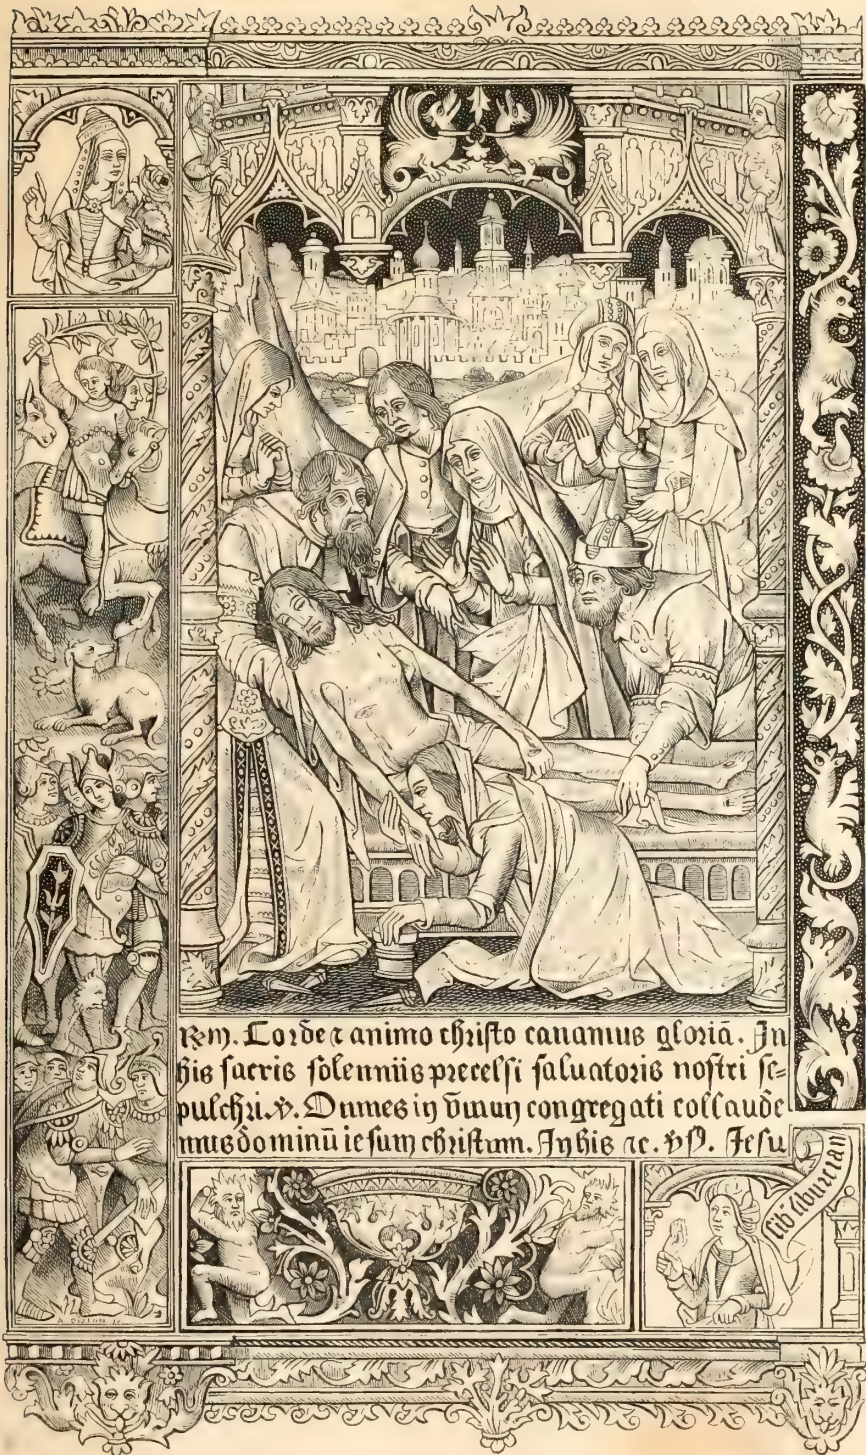 Corde ⁊ animo christo canamus gloriā. In
his sacris solenniis precelsi saluatoris nostri se=
pulchri. ꝟ. Omnes in vnum congregati collaude
mus dominū iesum christum. In his ⁊c. Iesu